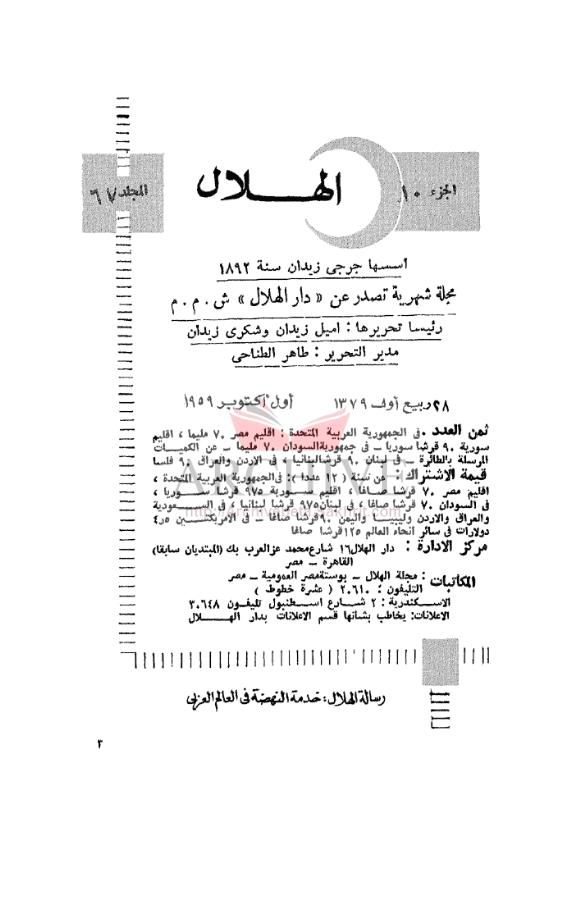 الجزء ١٠
الهلال
المجلد ٦٧
أسسها جرجى زيدان سنة ١٨٩٢
مجلة شهرية تصدر عن « دار الهلال » ش . م . م
رئيسا تحريرها : اميل زيدان وشكرى زيدان
مدير التحرير : طاهر الطناحى
٢٨ ربيع أول ١٣٧٩ أول أكتوبر ١٩٥٩
ثمن العدد . فى الجمهورية العربية المتحدة : اقليم مصر ٧٠ مليما ، اقليم
سورية ٩٠ قرشا سوريا – فى جمهورية السودان ٧٠ مليما – عن الكميات
المرسلة بالطائرة – فى لبنان ٩٠ قرشا لبنانيا – فى الاردن والعراق ٩٠ فلسا
قيمة الاشتراك : عن سنة ( ١٢ عددا ) : فى الجمهورية العربية المتحدة ،
اقليم مصر ٧٠ قرشا صاغا ، اقليم سورية ٩٧٥ قرشا سوريا ،
فى السودان ٧٠ قرشا صاغا ، فى لبنان ٩٧٥ قرشا لبنانيا ، فى السعودية
والعراق والاردن وليبيا واليمن ٩٠ قرشا صاغا – فى الامريكتين ٥ر٤
دولارات فى سائر انحاء العالم ١٢٥ قرشا صاغا
مركز الادارة : دار الهلال ١٦ شارع محمد عز العرب بك (المبتديان سابقا)
القاهرة – مصر
المكاتبات : مجلة الهلال – بوستة مصر العمومية – مصر
التليفون : ٢٠٦١٠ ( عشرة خطوط )
الاسكندرية : ٢ شارع اسطنبول تليفون ٣٠٦٤٨
الاعلانات : يخاطب بشأنها قسم الاعلانات بدار الهلال
رسالة الهلال : خدمة النهضة فى العالم العربى
٣
ARCHIVE